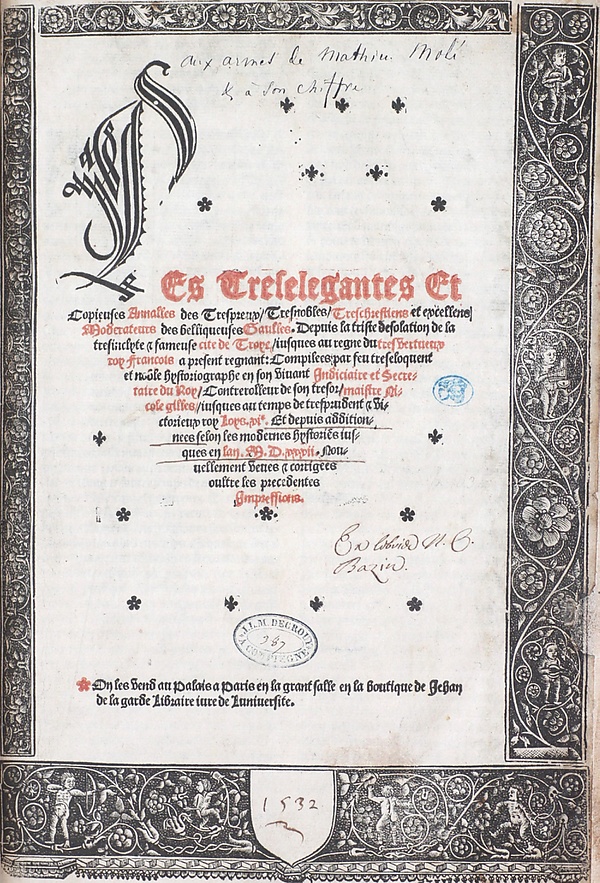 aux armes de Mathieu Molé
& à son chiffre
LEs Treselegantes Et
Copieuses Annalles des Trespreux/ Tresnobles/ Treschrestiens et excellens
Moderateurs des belliqueuses Gaulles. Depuis la triste desolation de la
tresinclyte & fameuse cite de Troye/ iusques au regne du tresvertueux
roy Francois a present regnant: Compilees par feu treseloquent
et noble hystoriographe en son viuant Indiciaire et Secre-
taire du Roy/ Contrerolleur de son tresor/ maistre Ni-
cole gilles/ iusques au temps de tresprudent & vi-
ctorieux roy Loys.xi. Et depuis addition-
nees selon les modernes hystoriēs ius-
ques en lan. M. D. xxxii. Nou-
uellement veues & corrigees
oultre les precedentes
Impressions.
Ex libris N. C.
Bazin.
J.L.M. DECROIT
A COMPIEGNE
987
On les vend au Palais a Paris en la grant salle en la boutique de Jehan
de la garde Libraire iure de Luniuersite.
1532